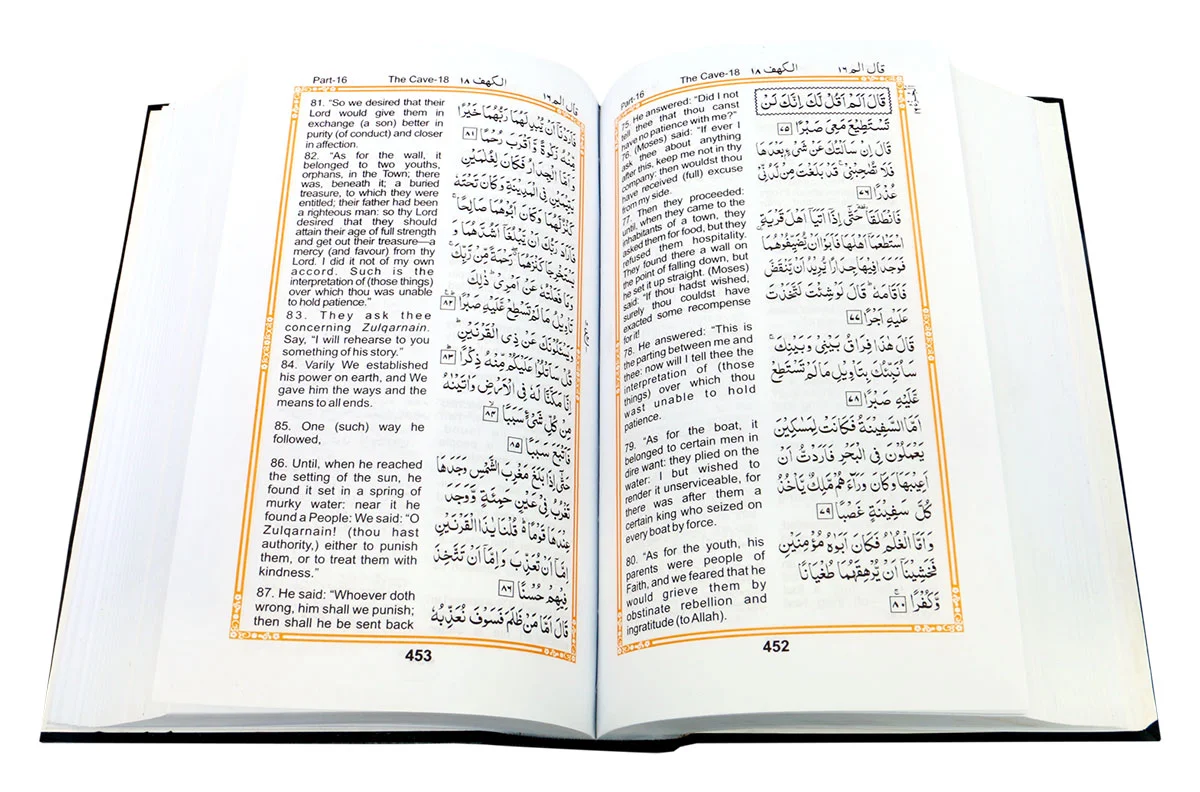 Part-16 The Cave-18 الكهف ١٨ قال الم ١٦
75. He answered: “Did I not
tell thee that thou canst
have no patience with me?”
76. (Moses) said: “If ever I
ask thee about anything
after this, keep me not in thy
company: then wouldst thou
have received (full) excuse
from my side.
77. Then they proceeded:
until, when they came to the
inhabitants of a town, they
asked them for food, but they
refused them hospitality.
They found there a wall on
the point of falling down, but
he set it up straight. (Moses)
said: “If thou hadst wished,
surely thou couldst have
exacted some recompense
for it!
78. He answered: “This is
the parting between me and
thee: now will I tell thee the
interpretation of (those
things) over which thou
wast unable to hold
patience.
79. “As for the boat, it
belonged to certain men in
dire want: they plied on the
water: I but wished to
render it unserviceable, for
there was after them a
certain king who seized on
every boat by force.
80. “As for the youth, his
parents were people of
Faith, and we feared that he
would grieve them by
obstinate rebellion and
ingratitude (to Allah).
قَالَ اَلَمْ اَقُلْ لَّكَ اِنَّكَ لَنْ
تَسْتَطِيْعَ مَعِىَ صَبْرًا ٧٥
قَالَ اِنْ سَاَلْتُكَ عَنْ شَىْءٍۭ بَعْدَهَا
فَلَا تُصٰحِبْنِىْ ۚ قَدْ بَلَغْتَ مِنْ لَّدُنِّىْ
عُذْرًا ٧٦
فَانْطَلَقَا حَتّٰٓى اِذَآ اَتَيَآ اَهْلَ قَرْيَةِ ِۨ
اسْتَطْعَمَآ اَهْلَهَا فَاَبَوْا اَنْ يُّضَيِّفُوْهُمَا
فَوَجَدَا فِيْهَا جِدَارًا يُّرِيْدُ اَنْ يَّنْقَضَّ
فَاَقَامَهٗ ؕ قَالَ لَوْ شِئْتَ لَتَّخَذْتَ
عَلَيْهِ اَجْرًا ٧٧
قَالَ هٰذَا فِرَاقُ بَيْنِىْ وَبَيْنِكَ ۚ
سَاُنَبِّئُكَ بِتَاْوِيْلِ مَا لَمْ تَسْتَطِعْ
عَّلَيْهِ صَبْرًا ٧٨
اَمَّا السَّفِيْنَةُ فَكَانَتْ لِمَسٰكِيْنَ
يَعْمَلُوْنَ فِى الْبَحْرِ فَاَرَدْتُّ اَنْ
اَعِيْبَهَا وَكَانَ وَرَآءَهُمْ مَّلِكٌ يَّاْخُذُ
كُلَّ سَفِيْنَةٍ غَصْبًا ٧٩
وَاَمَّا الْغُلٰمُ فَكَانَ اَبَوٰهُ مُؤْمِنَيْنِ
فَخَشِيْنَآ اَنْ يُّرْهِقَهُمَا طُغْيَانًا
وَّكُفْرًا ٨٠
452
Part-16 The Cave-18 الكهف ١٨ قال الم ١٦
81. “So we desired that their
Lord would give them in
exchange (a son) better in
purity (of conduct) and closer
in affection.
82. “As for the wall, it
belonged to two youths,
orphans, in the Town; there
was, beneath it; a buried
treasure, to which they were
entitled; their father had been
a righteous man: so thy Lord
desired that they should
attain their age of full strength
and get out their treasure—a
mercy (and favour) from thy
Lord. I did it not of my own
accord. Such is the
interpretation of (those things)
over which thou was unable
to hold patience.”
83. They ask thee
concerning Zulqarnain.
Say, “I will rehearse to you
something of his story.”
84. Varily We established
his power on earth, and We
gave him the ways and the
means to all ends.
85. One (such) way he
followed,
86. Until, when he reached
the setting of the sun, he
found it set in a spring of
murky water: near it he
found a People: We said: “O
Zulqarnain! (thou hast
authority,) either to punish
them, or to treat them with
kindness.”
87. He said: “Whoever doth
wrong, him shall we punish;
then shall he be sent back
فَاَرَدْنَآ اَنْ يُّبْدِلَهُمَا رَبُّهُمَا خَيْرًا
مِّنْهُ زَكٰوةً وَّاَقْرَبَ رُحْمًا ٨١
وَاَمَّا الْجِدَارُ فَكَانَ لِغُلٰمَيْنِ
يَتِيْمَيْنِ فِى الْمَدِيْنَةِ وَكَانَ تَحْتَهٗ
كَنْزٌ لَّهُمَا وَكَانَ اَبُوْهُمَا صَالِحًا ۚ
فَاَرَادَ رَبُّكَ اَنْ يَّبْلُغَآ اَشُدَّهُمَا وَ
يَسْتَخْرِجَا كَنْزَهُمَا ۖ رَحْمَةً مِّنْ رَّبِّكَ ۚ
وَمَا فَعَلْتُهٗ عَنْ اَمْرِىْ ؕ ذٰلِكَ
تَاْوِيْلُ مَا لَمْ تَسْطِعْ عَّلَيْهِ صَبْرًا ٨٢
وَيَسْـَٔلُوْنَكَ عَنْ ذِى الْقَرْنَيْنِ ؕ
قُلْ سَاَتْلُوْا عَلَيْكُمْ مِّنْهُ ذِكْرًا ٨٣
اِنَّا مَكَّنَّا لَهٗ فِى الْاَرْضِ وَاٰتَيْنٰهُ
مِنْ كُلِّ شَىْءٍ سَبَبًا ٨٤
فَاَتْبَعَ سَبَبًا ٨٥
حَتّٰٓى اِذَا بَلَغَ مَغْرِبَ الشَّمْسِ وَجَدَهَا
تَغْرُبُ فِىْ عَيْنٍ حَمِئَةٍ وَّوَجَدَ
عِنْدَهَا قَوْمًا ؕ قُلْنَا يٰذَا الْقَرْنَيْنِ
اِمَّآ اَنْ تُعَذِّبَ وَاِمَّآ اَنْ تَتَّخِذَ
فِيْهِمْ حُسْنًا ٨٦
قَالَ اَمَّا مَنْ ظَلَمَ فَسَوْفَ نُعَذِّبُهٗ
453